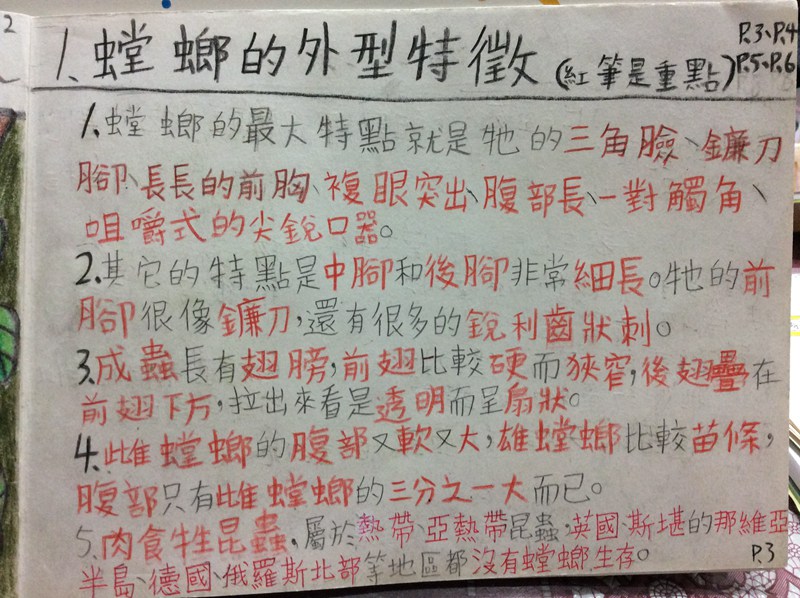 2
1.螳螂的外型特徵(紅筆是重點)
P.3、P.4
P.5、P.6
1.螳螂的最大特點就是牠的三角臉、鐮刀
腳、長長的前胸、複眼突出、腹部長、一對觸角、
咀嚼式的尖銳口器。
2.其它的特點是中腳和後腳非常細長。牠的前
腳很像鐮刀,還有很多的銳利齒狀刺。
3.成蟲長有翅膀,前翅比較硬而狹窄,後翅疊在
前翅下方,拉出來看是透明而呈扇狀。
4.雌螳螂的腹部又軟又大,雄螳螂比較苗條,
腹部只有雌螳螂的三分之一大而已。
5.肉食性昆蟲,屬於熱帶、亞熱帶昆蟲,英國、斯堪的那維亞
半島、德國、俄羅斯北部等地區都沒有螳螂生存。
P.3